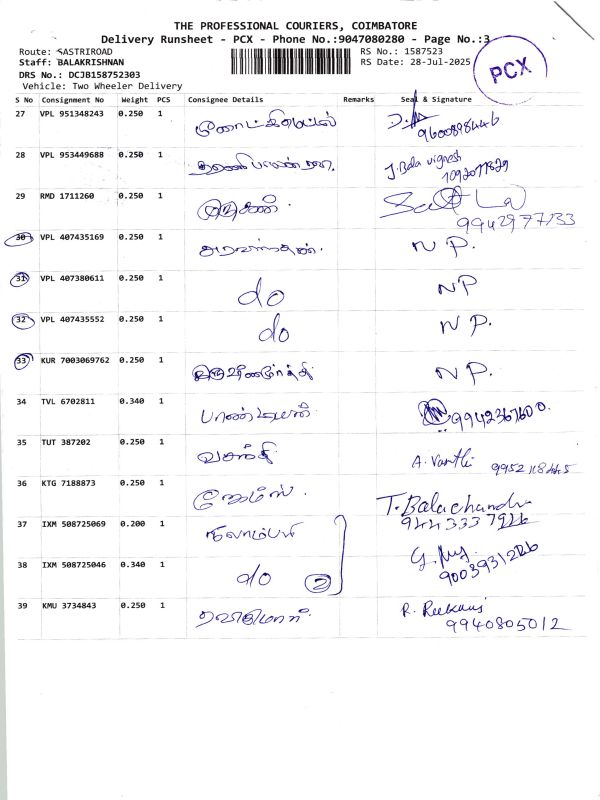 THE PROFESSIONAL COURIERS, COIMBATORE
Delivery Runsheet - PCX - Phone No.:9047080280 - Page No.:3
Route: SASTRIROAD
RS No.: 1587523
Staff: BALAKRISHNAN
RS Date: 28-Jul-2025
DRS No.: DCJB158752303
Vehicle: Two Wheeler Delivery
PCX
S No Consignment No Weight PCS Consignee Details Remarks Seal & Signature
27 VPL 951348243 0.250 1
9600898446
28 VPL 953449688 0.250 1 J. Bala vignesh
29 RMD 1711260 0.250 1
9942977133
30 VPL 407435169 0.250 1 அரவிந்தன். N P.
31 VPL 407380611 0.250 1 do N P
32 VPL 407435552 0.250 1 do N P.
33 KUR 7003069762 0.250 1 N P.
34 TVL 6702811 0.340 1 பாண்டியன் 9942367600.
35 TUT 387202 0.250 1 வசந்தி A. Vanthi
36 KTG 7188873 0.250 1 ஜேம்ஸ். T. Balachandr
37 IXM 508725069 0.200 1
38 IXM 508725046 0.340 1 do 2
39 KMU 3734843 0.250 1 ரவிகுமார். R.
9940805012